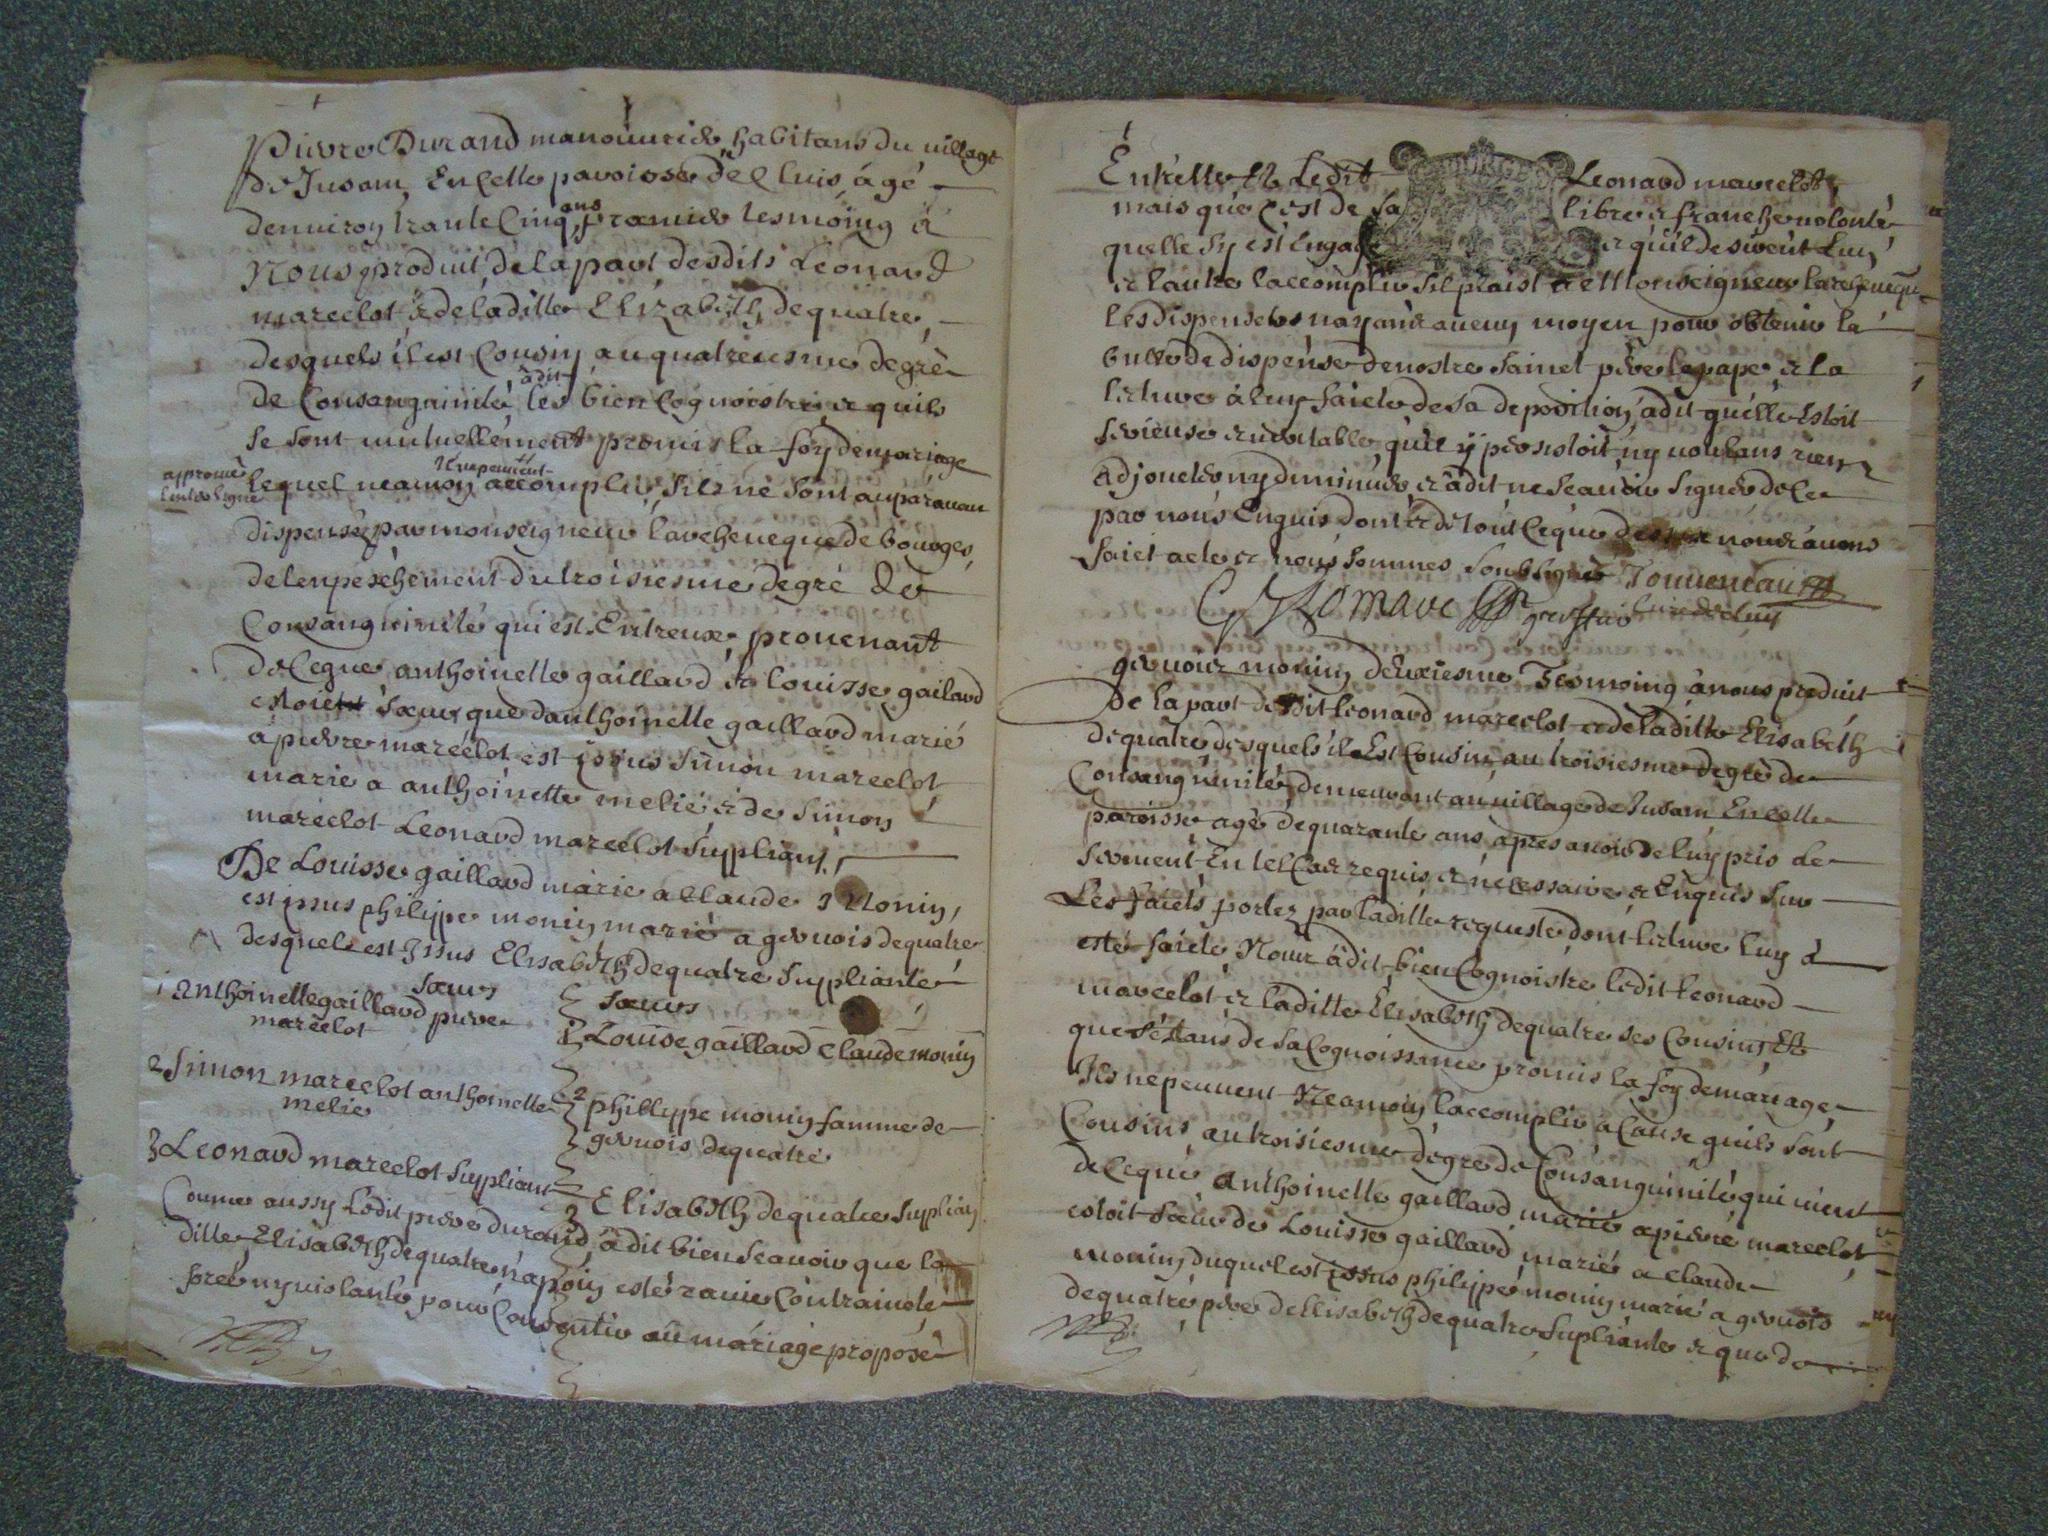 Pierre Durand manouurier habitans du uillage
de Jusam En Celle paroisse déeluis âgé
denuiron trante Cinq ans premier tesmoing a
Nous produit de la part desdits Leonard
marcelot & de laditte Elizabeth dequatre
desquels il est Cousin au quatriesme degré
de Consanguinité, â dit les bien Cognoistre & quils
se sont mutuellement promis la foy demariage
approuué
linterligne
lequel neamoin ilz ne peuuent accomplir silz ne sont auparauan
dispensez par monseigneur larcheueque de bourges
de lenpeschement du troisiesme degré de
Consanguinité qui est Entreux prouenant
de ceque anthoinette gaillard & louisse gailard
estoient sœurs que danthoinette gaillard marié
a pierre marcelot est issus Simon marcelot
marié a anthoinette melié & de Simon
marcelot Leonard marcelot supliant
De Louisse gaillard marié a Claude Monin
est issus philippe monin marié a geruois dequatre
desquels est Issus Elisabeth dequatre suppliante
sœurs
1 Anthoinette gaillard pierre
marcelot
sœurs
1 Louise gaillard Claude monin
2 Simon marcelot anthoinette
melie
2 phillype monin famme de
geruois dequatre
3 Leonard marcelot supliant
3 Elisabeth dequatre suplian
Comme aussy Ledit pierre durand â dit bien scauoir que la
ditte Elisabeth dequatre n'a poin esté rauie Contrainte
forcé ny uiolanté pour Consentir au mariage proposé
Entrelle & Ledit Leonard marcelot
mais que cest de sa libre & franche uolonté
quelle sy est Engagé & quil desirent lun
& lautre laccomplir sil plaist a Monseigneur larcheueque
les dispenser nayant aucun moyen pour obtenir la
bulle de dispense de nostre sainct pere le pape & la
lecture a luy faicte de sa deposition, a dit quelle Estoit
serieuse & ueritable quil y persistoit ny uoulans rien
adjoucter ny diminuer & â dit ne scauoir signer de ce
par nous Enquis dont & de tout ceque dessus nous auons
faict acte & nous sommes soubsigné Touueneau
greffier Curé deluis
geruois monin deuxiesme Tesmoing a nous produit
De la part dudit Leonard marcelot & de laditte Elisabeth
dequatre desquels il Est Cousin au troisiesme degré de
Consanguinité, demeurant au uillage de Jusam En celle
paroisse agé de quarante ans apres auoir de luy pris le
serment En tel Cas requis & necessaire & Enquis sur
Les faicts portez par laditte requeste dont lecture luy a
esté faicte Nous â dit bien Cognoistre ledit Leonard
marcelot & laditte Elisabeth dequatre ses Cousins Et
que sestans de sa Cognoissance promis la foy demariage
Ils ne peuuent Neamoin laccomplir a Cause quils sont
Cousins au troisiesme degre de Consanguinité qui uient
de ceque anthoinette gaillard marié a pierre marcelot
estoit sœur de Louisse gaillard marié a claude
monin duquel est issus philippe monin marié a geruois
dequatre pere de Elisabeth dequatre supliante & que de